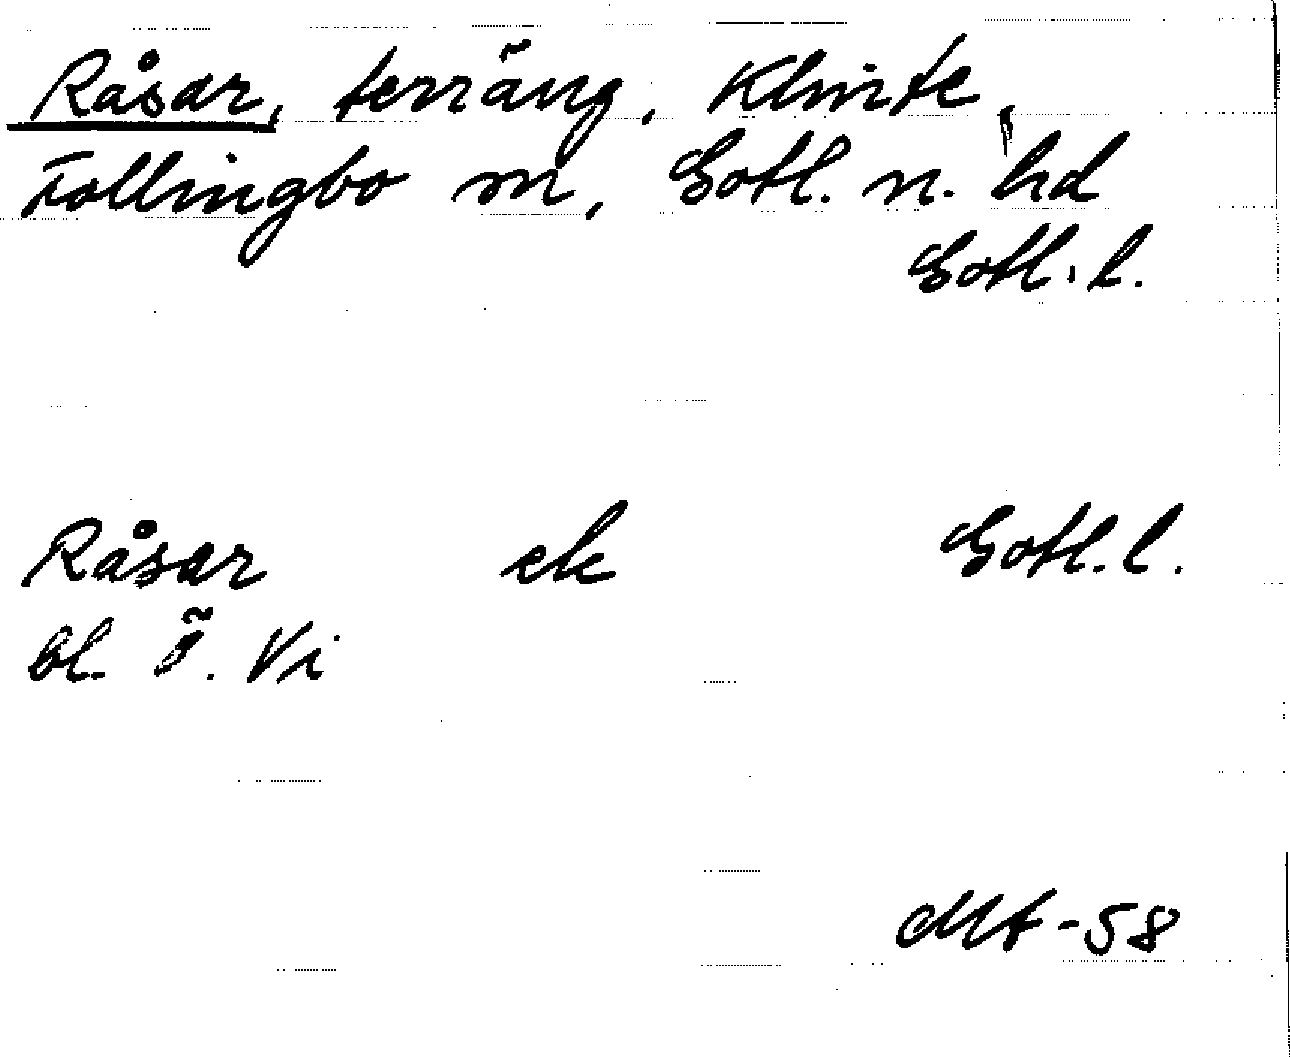 Råsar, terräng, Klinte,
Follingbo sn, Gotl. n. hd
Gotl. l.
Råsar ek Gotl. l.
bl. Ö. Vi
Mt-58